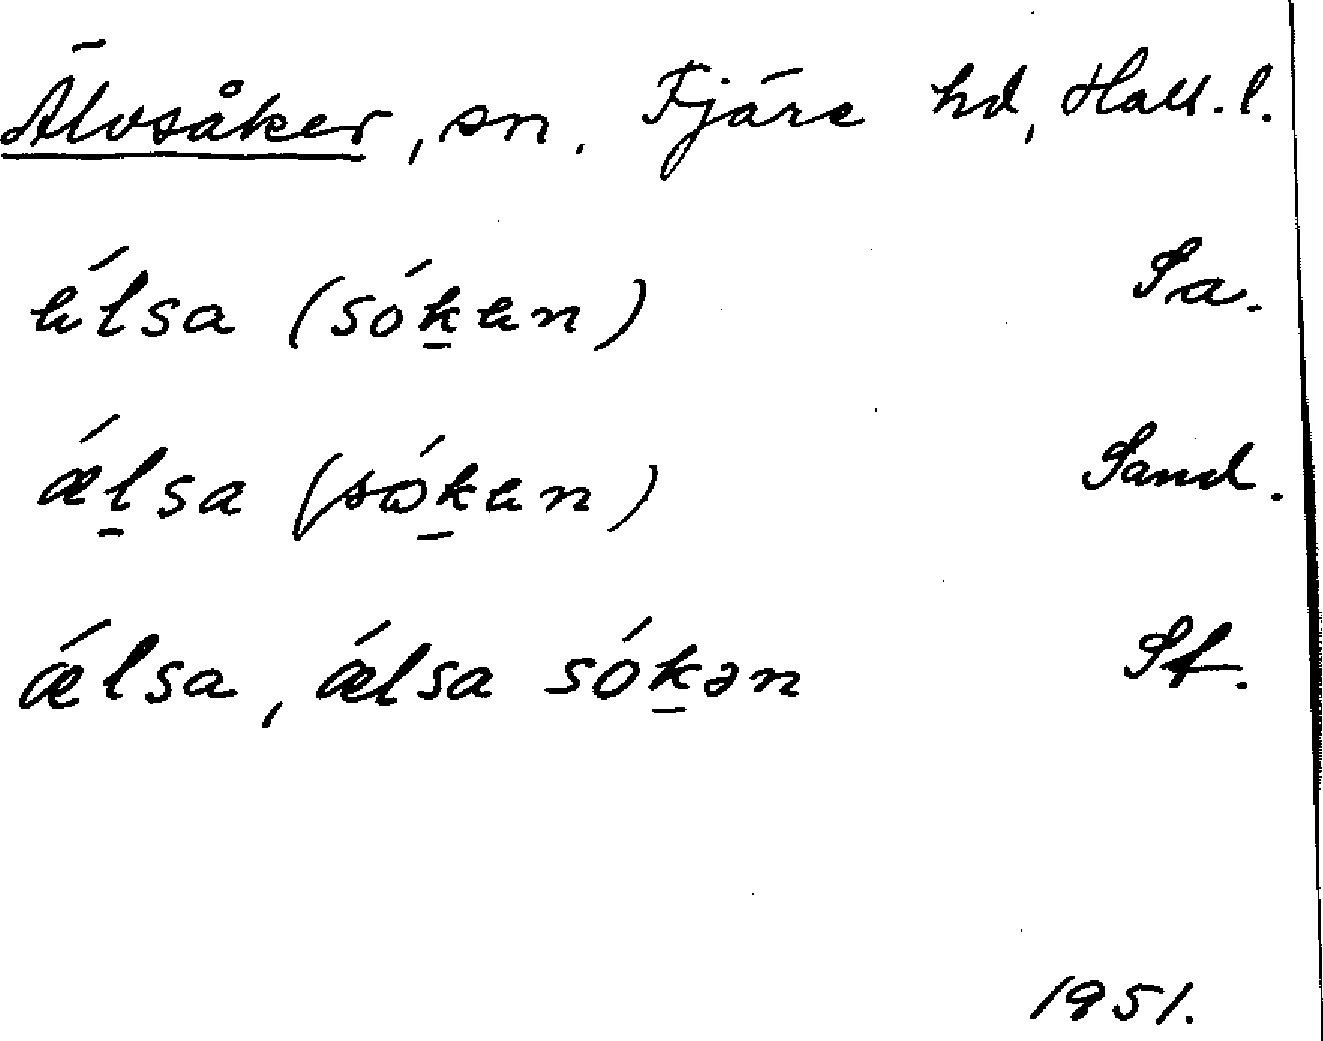 Älvsåker, sn. Fjäre hd, Hall. l.
älsa (sóḵen) Sa.
ǽḻsa (sóḵen) Sand.
ǽlsa, ǽlsa sóḵən Sf.
1951.